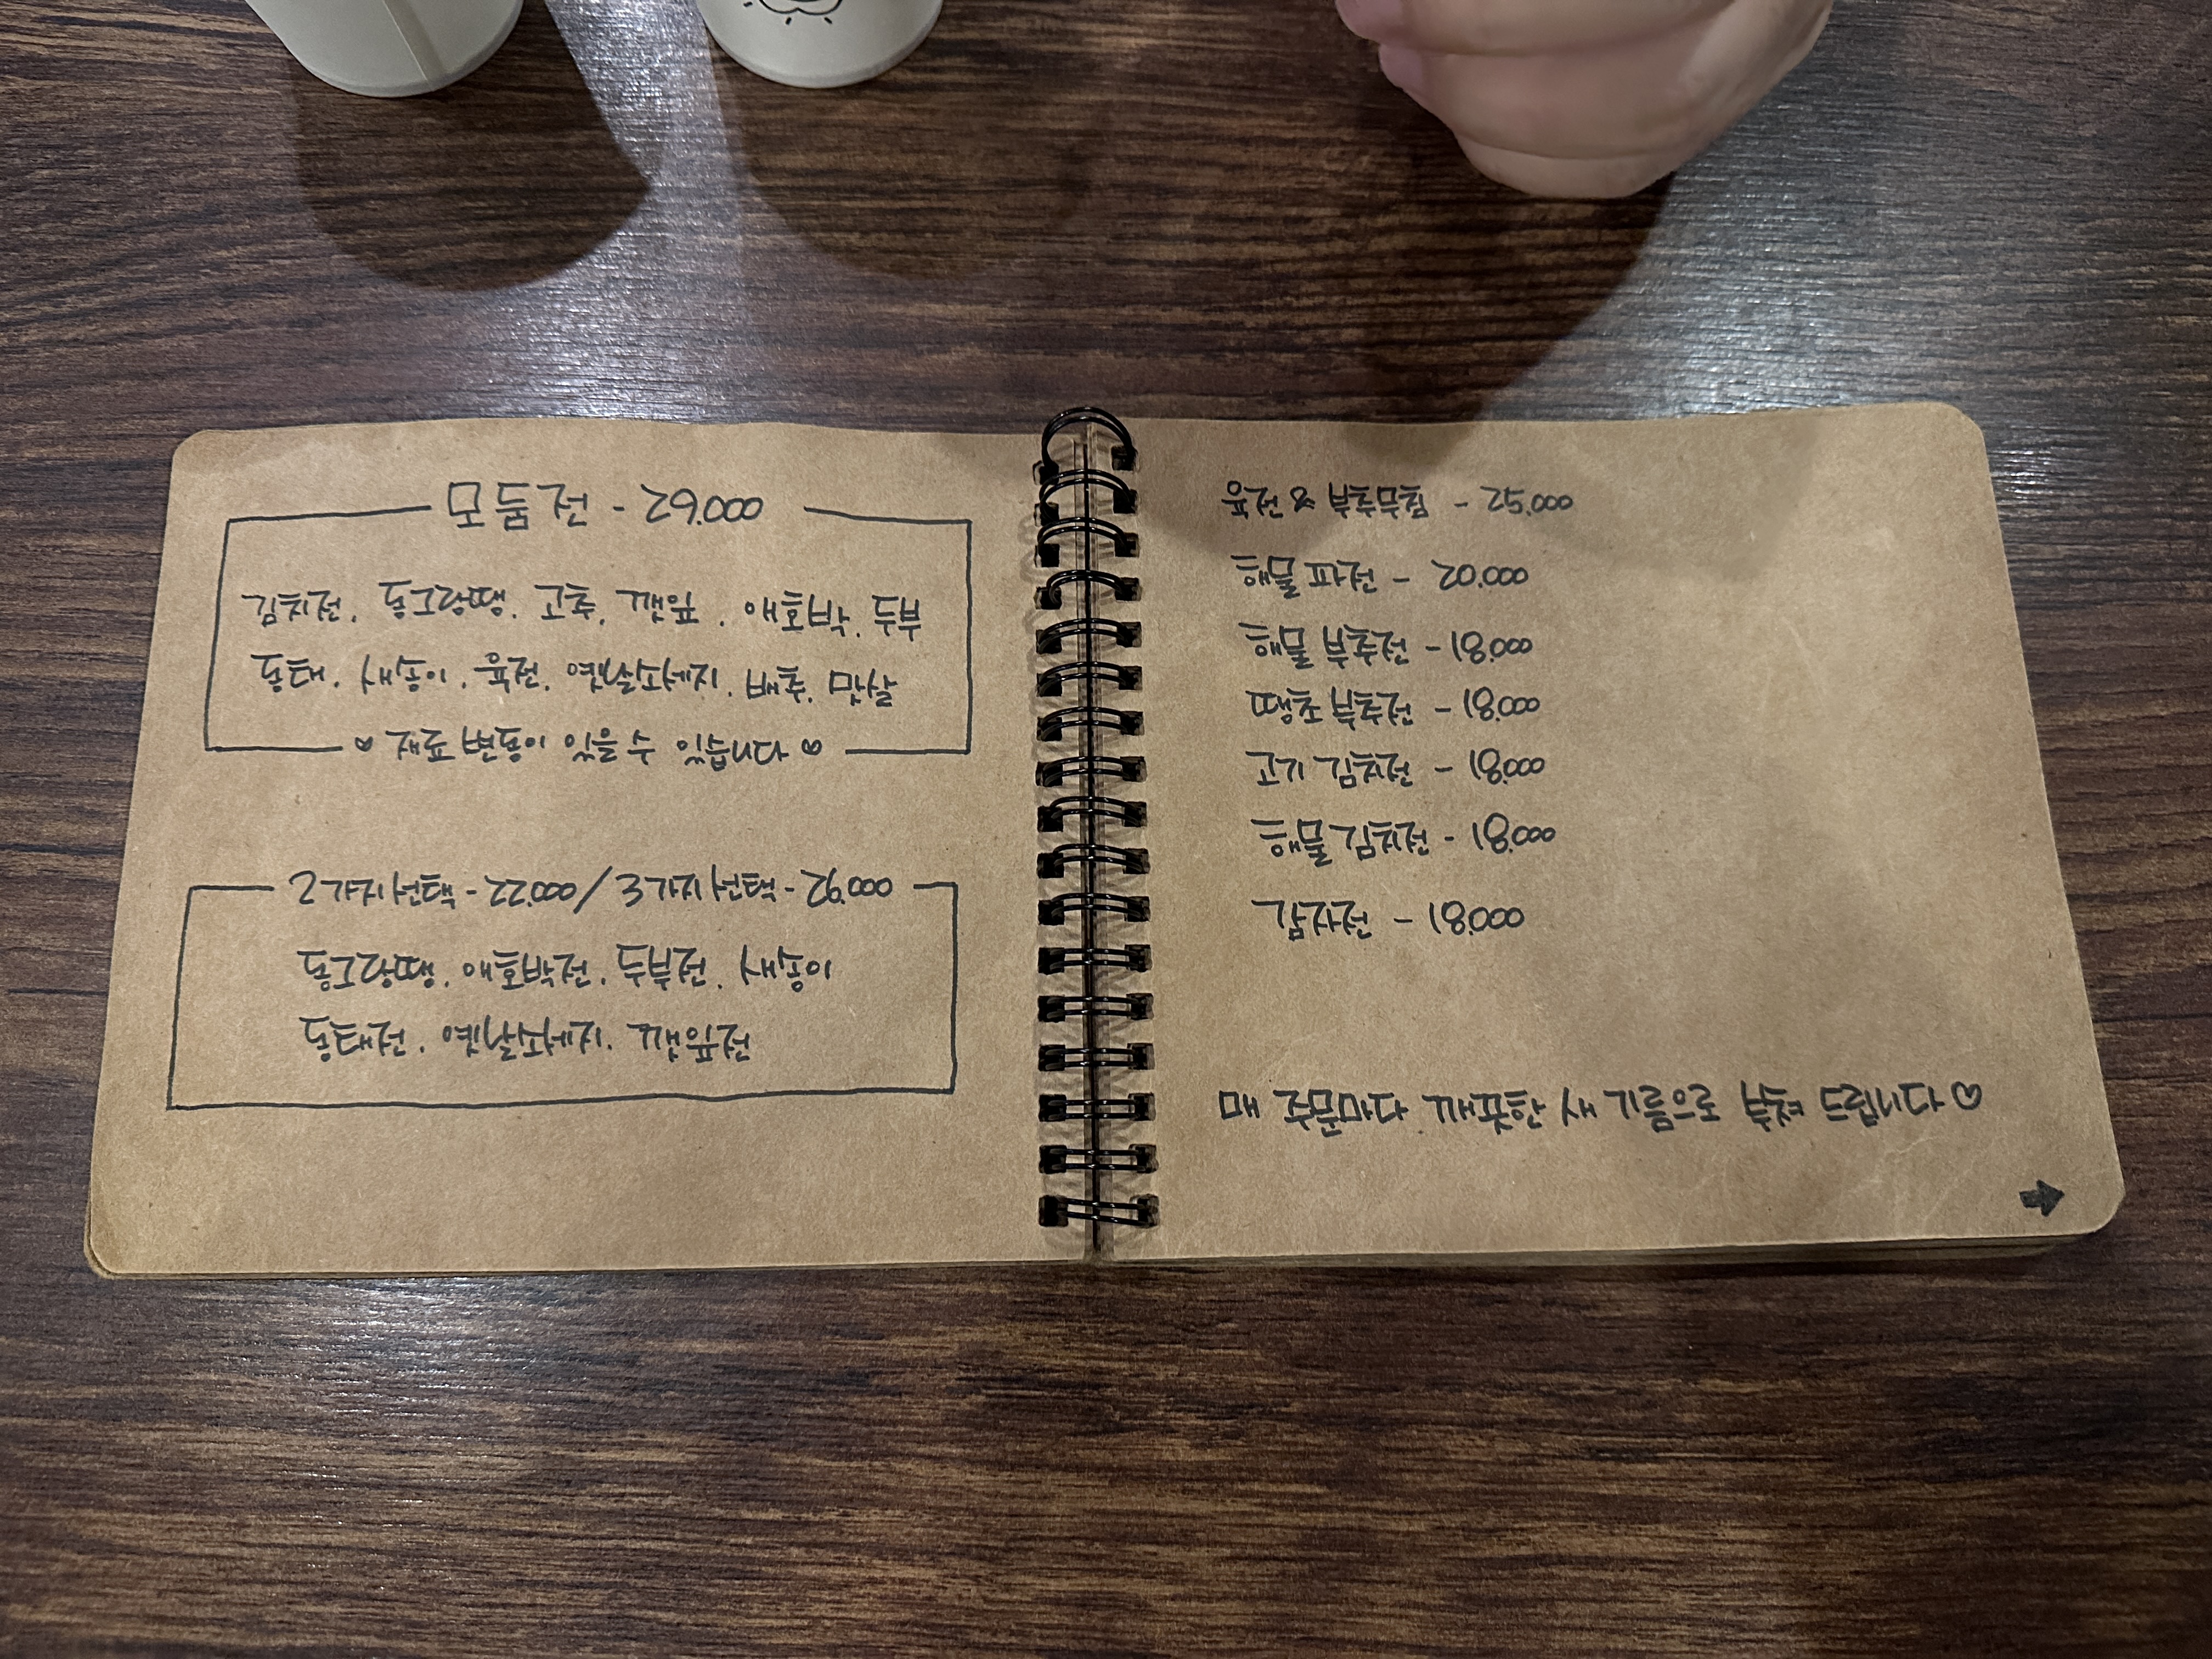 모둠전 - 29.000
김치전. 동그랑땡. 고추. 깻잎. 애호박. 두부
동태. 새송이. 육전. 옛날소세지. 배추. 맛살
♡ 재료 변동이 있을 수 있습니다 ♡
2가지선택 - 22.000 / 3가지선택 - 26.000
동그랑땡. 애호박전. 두부전. 새송이
동태전. 옛날소세지. 깻잎전
육전 & 부추무침 - 25.000
해물파전 - 20.000
해물 부추전 - 18.000
땡초 부추전 - 18.000
고기 김치전 - 18.000
해물 김치전 - 18.000
감자전 - 18.000
매 주문마다 깨끗한 새 기름으로 부쳐 드립니다♡
➡